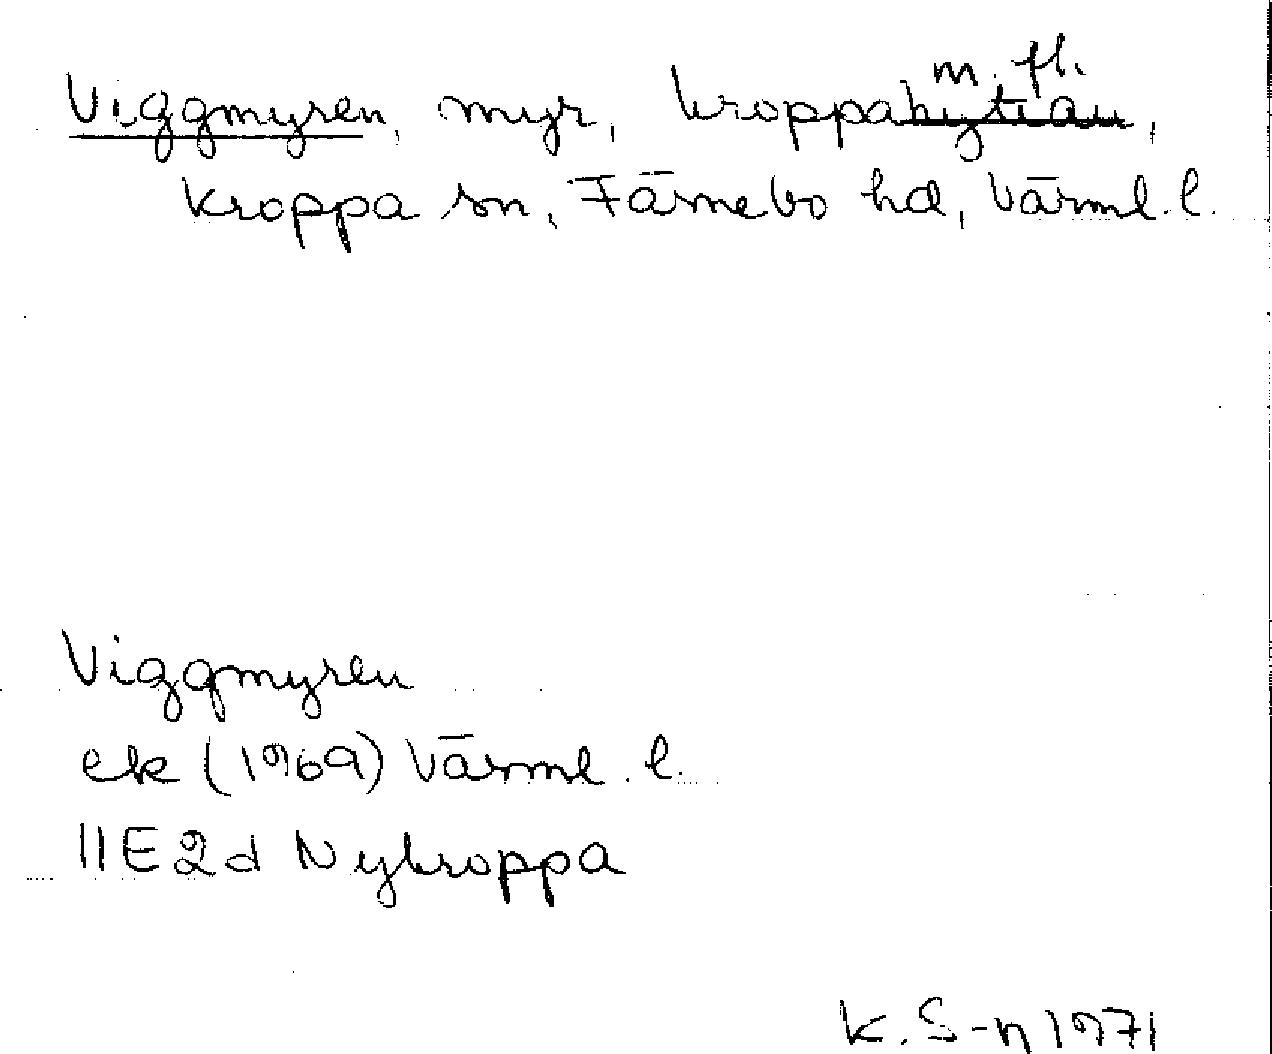 Viggmyren, myr, Kroppa m. fl.,
Kroppa sn, Färnebo hd, Värml. l.
Viggmyren
ek (1969) Värml. l.
11E2d Nykroppa
K. S-n 1971